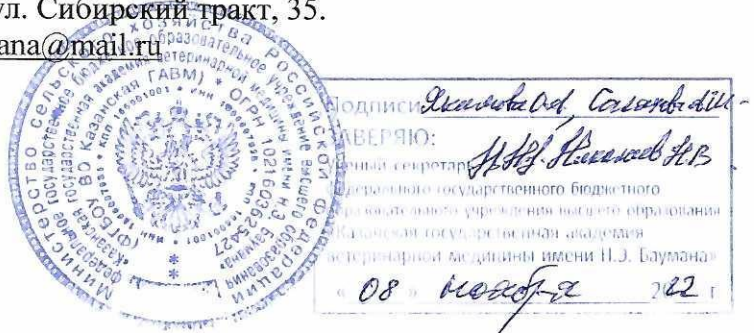 ул. Сибирский тракт, 35.
ana@mail.ru
Министерство сельского хозяйства Российской Федерации
федеральное государственное бюджетное образовательное учреждение высшего образования
«Казанская государственная академия ветеринарной медицины имени Н.Э. Баумана»
(ФГБОУ ВО Казанская ГАВМ) * ОГРН 1021603625427
Подписи
ЗАВЕРЯЮ:
ученый секретарь Николаев НВ
федерального государственного бюджетного
образовательного учреждения высшего образования
«Казанская государственная академия
ветеринарной медицины имени Н.Э. Баумана»
« 08 » ноября 2022 г